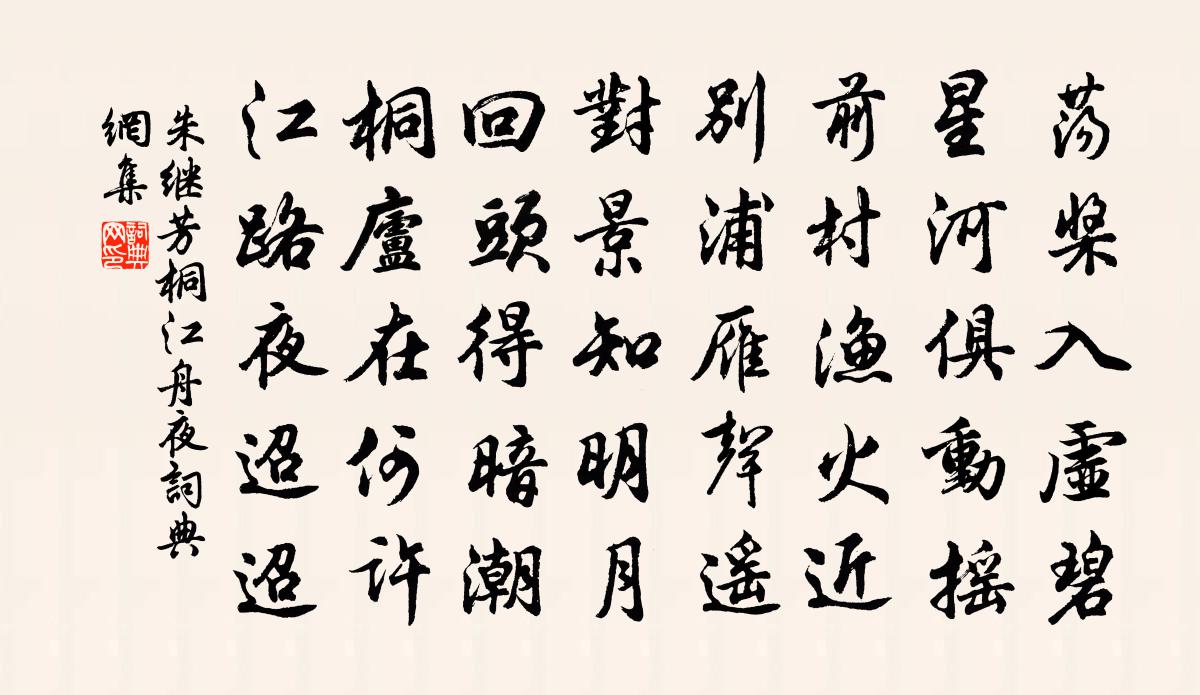 荡槳入虛碧
星河俱動摇
前村漁火近
別浦雁聲遥
對景知明月
回頭得暗潮
桐廬在何許
江路夜迢迢
朱继芳桐江舟夜詞典
網集
詞典网印